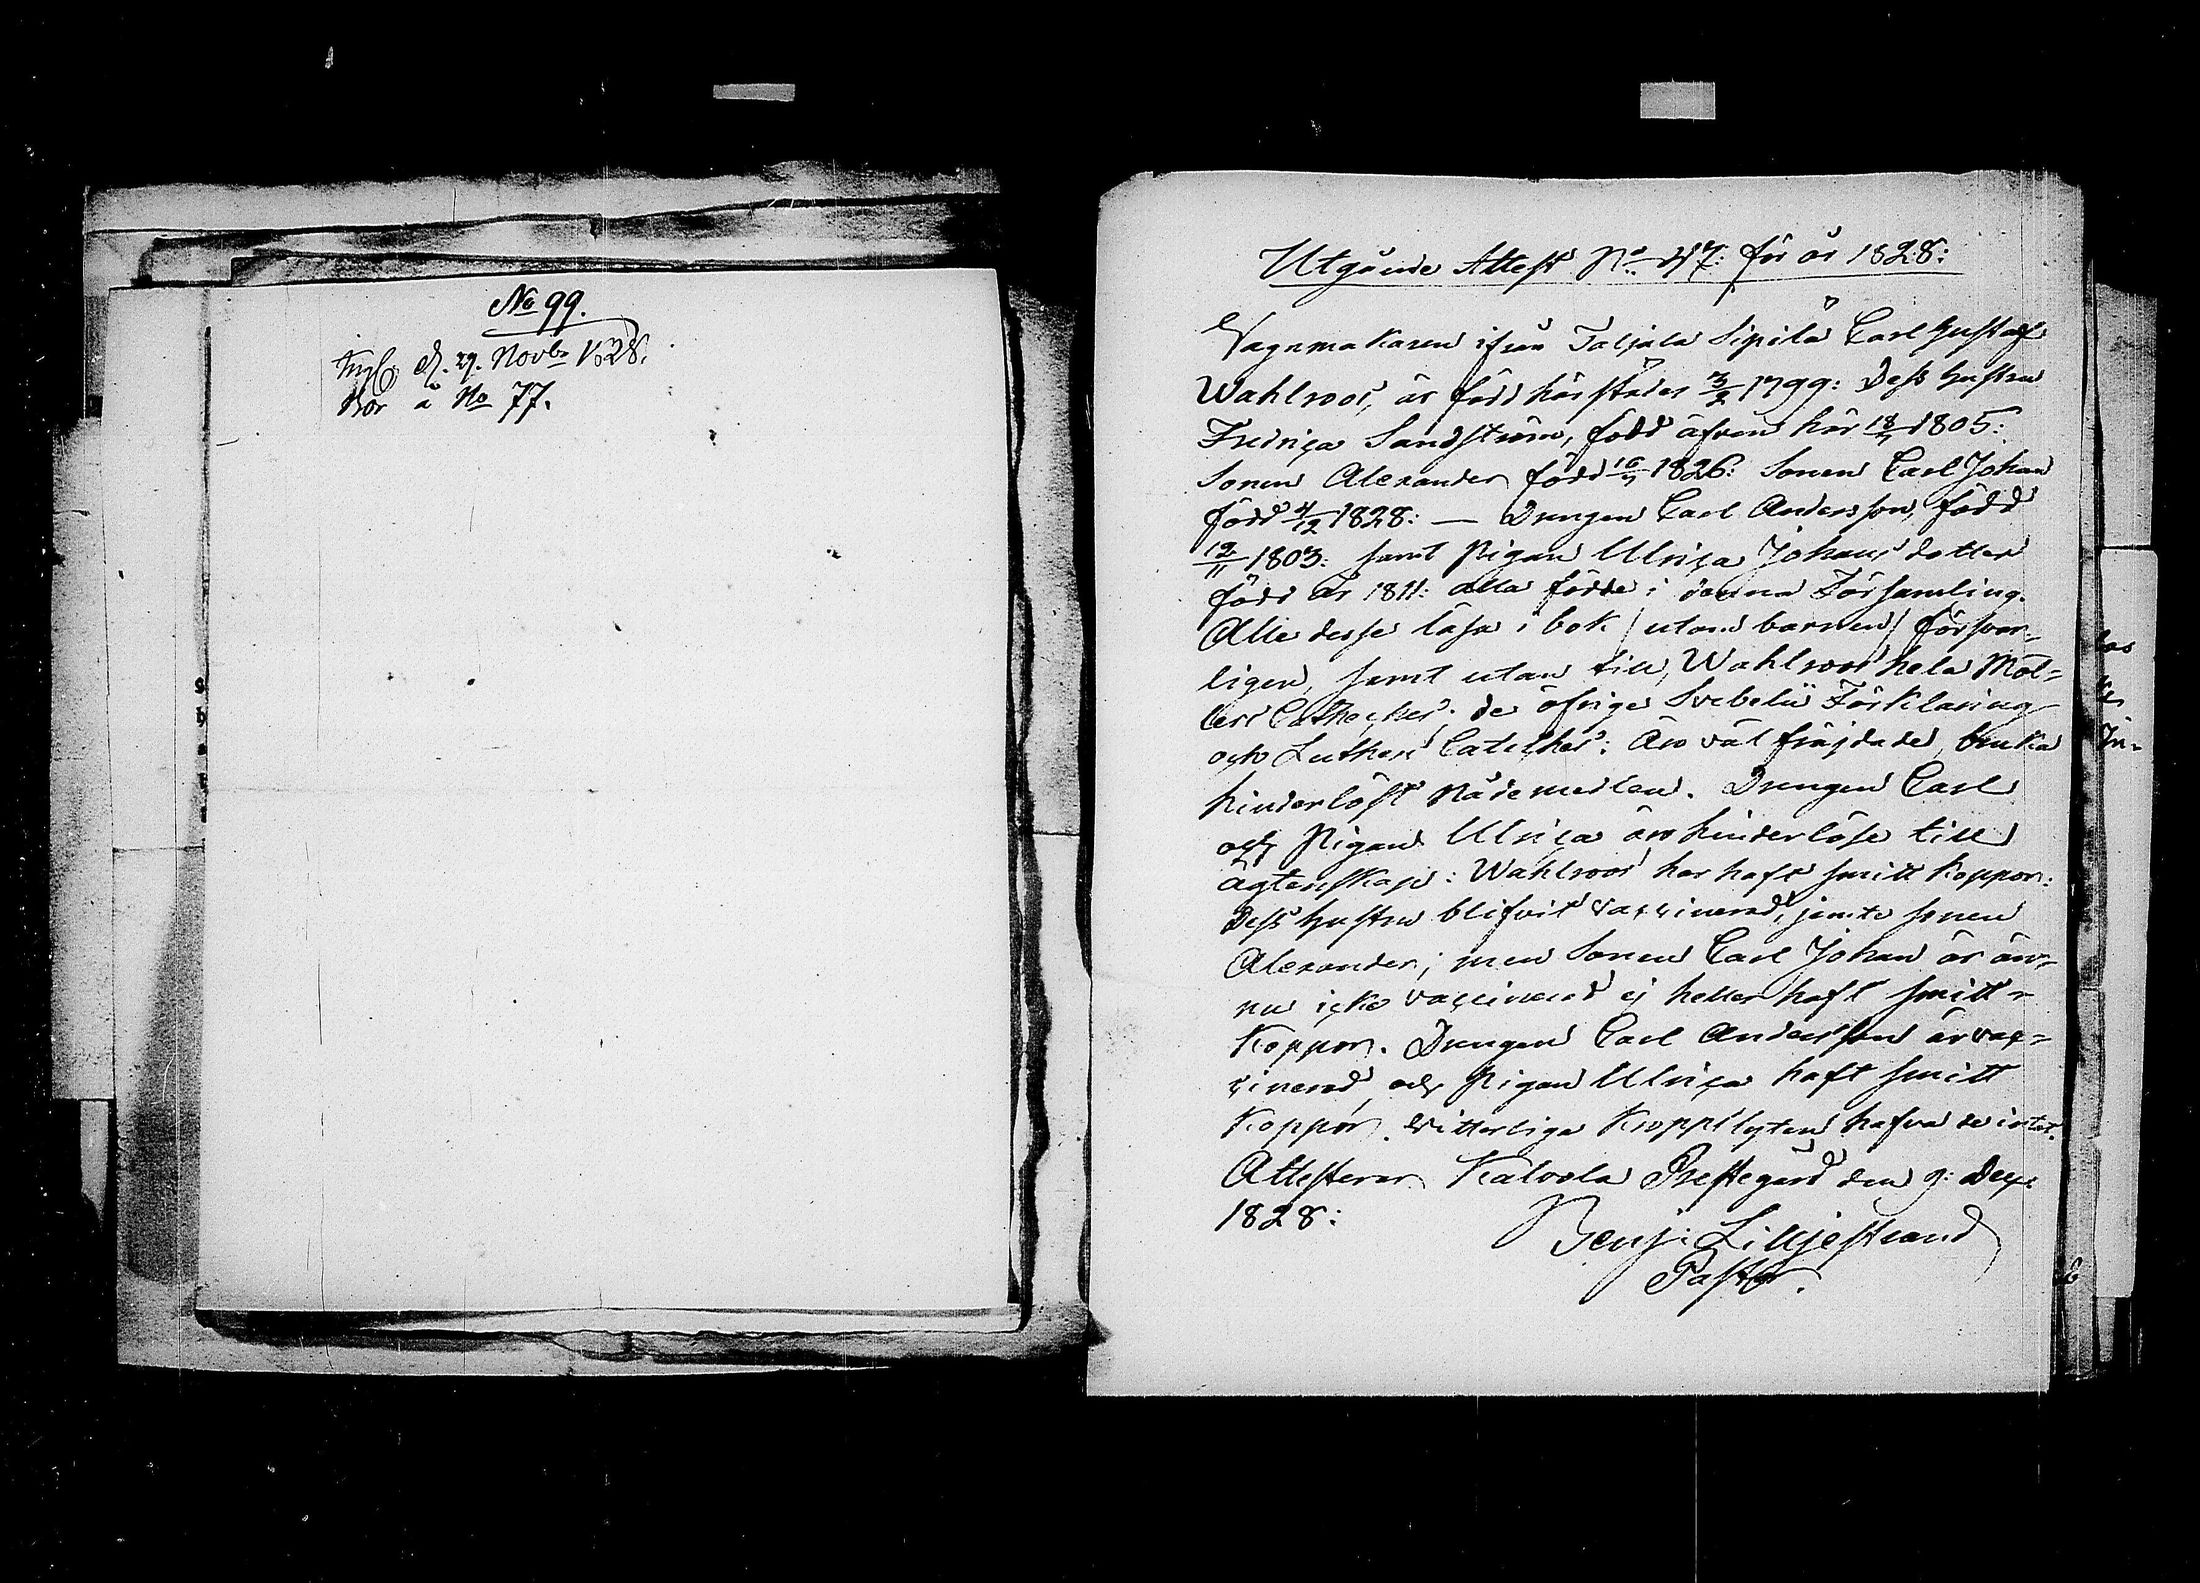 No 99.
d. 29. Novbr 1828.
Bor å No 77.
Utgående Attest No 47: för år 1828:
Vagnmakaren ifrån Taljala Sipilä Carl Gustaf
Wahlroos, är född härstädes 3/2 1799: Dess hustru
Fredriça Sandström, född äfven här 18/7 1805:
Sonen Alexander född 16/7 1826: Sonen Carl Johan
född 4/12 1828: — Drengen Carl Andersson, född
12/11 1803: samt Pigan Ulriça Johansdotter
född År 1811: alla födde i denna Församling.
Alla desse läsa i bok /utom barnen/ försvar-
ligen, samt utan till, Wahlroos hela Möl-
lers Catheches: de öfrige Svebelii Förklaring
och Lutheri Cateches: Äro väl fräjdade, bruka
hinderlöst Nådemedlen. Drengen Carl
och Pigan Ulriça äro hinderlöse till
ägtenskap: Wahlroos har haft smitt koppor:
Dess hustru blifvit vaccinerad, jemte sonen
Alexander; men Sonen Carl Johan är än-
nu icke vaccinerad ej heller haft smitt-
Koppor. Drengen Carl Andersson är vac-
cinerad och Pigan Ulriça haft smitt
Koppor. Vitterliga Kroppslyten hafva de intet.
Attesterar Kalvola Prestegård den 9: Dec:
1828:
Benj: Lilljestrand
Pastor.